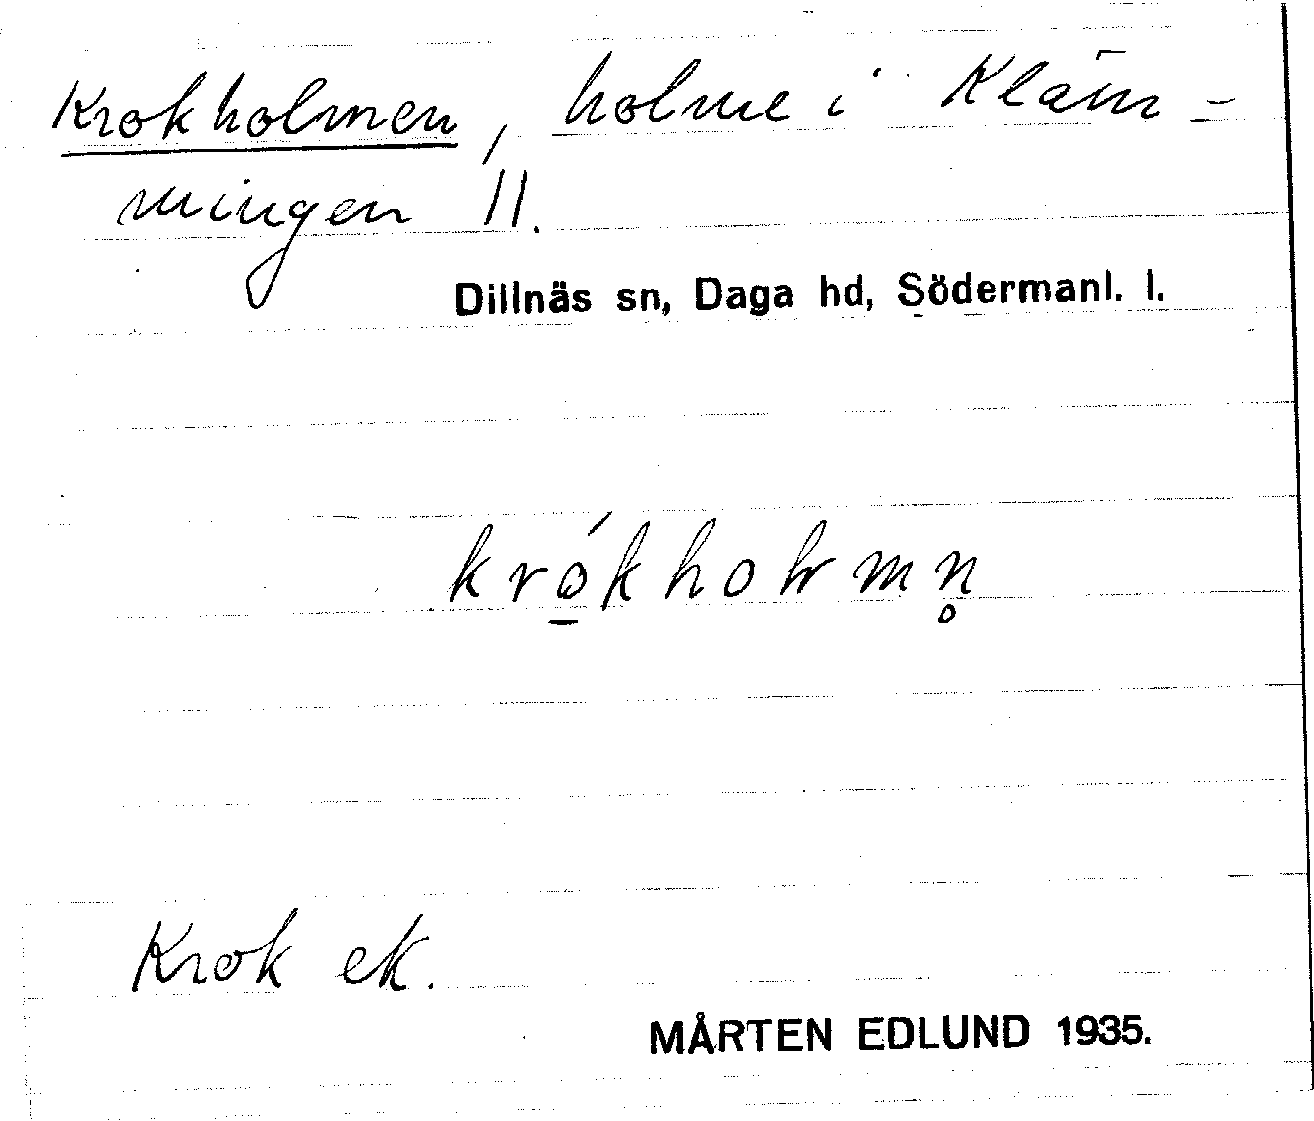 Krokholmen, holme i Kläm-
mingen 11.
Dillnäs sn, Daga hd, Södermanl. l.
Krok ek.
MÅRTEN EDLUND 1935.